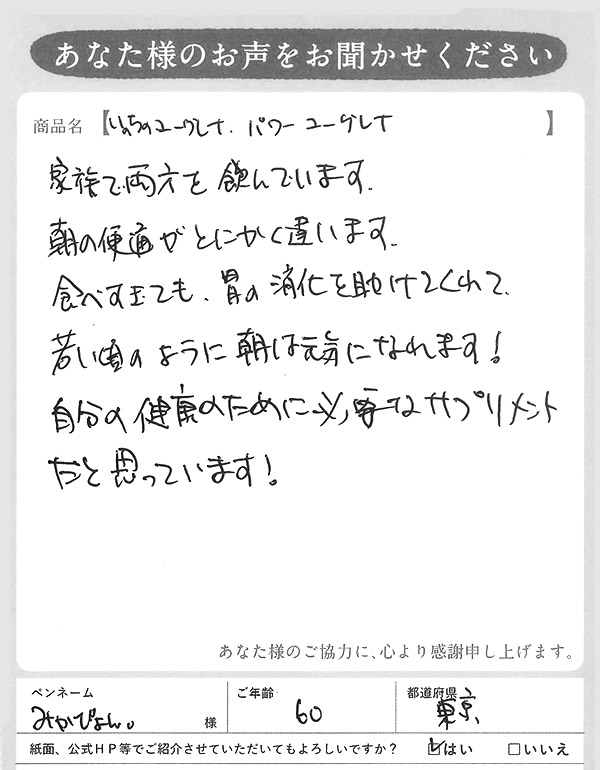 あなた様のお声をお聞かせください
商品名【いのちのユーグレナ. パワーユーグレナ】
家族で両方を飲んでいます.
朝の便通がとにかく違います.
食べすぎても、胃の消化を助けてくれて、
若い頃のように朝は元気になれます!
自分の健康のために必要なサプリメント
だと思っています!
あなた様のご協力に、心より感謝申し上げます。
ペンネーム みかぴょん。 様 ご年齢 60 都道府県 東京
紙面、公式HP等でご紹介させていただいてもよろしいですか? ☑はい □いいえ